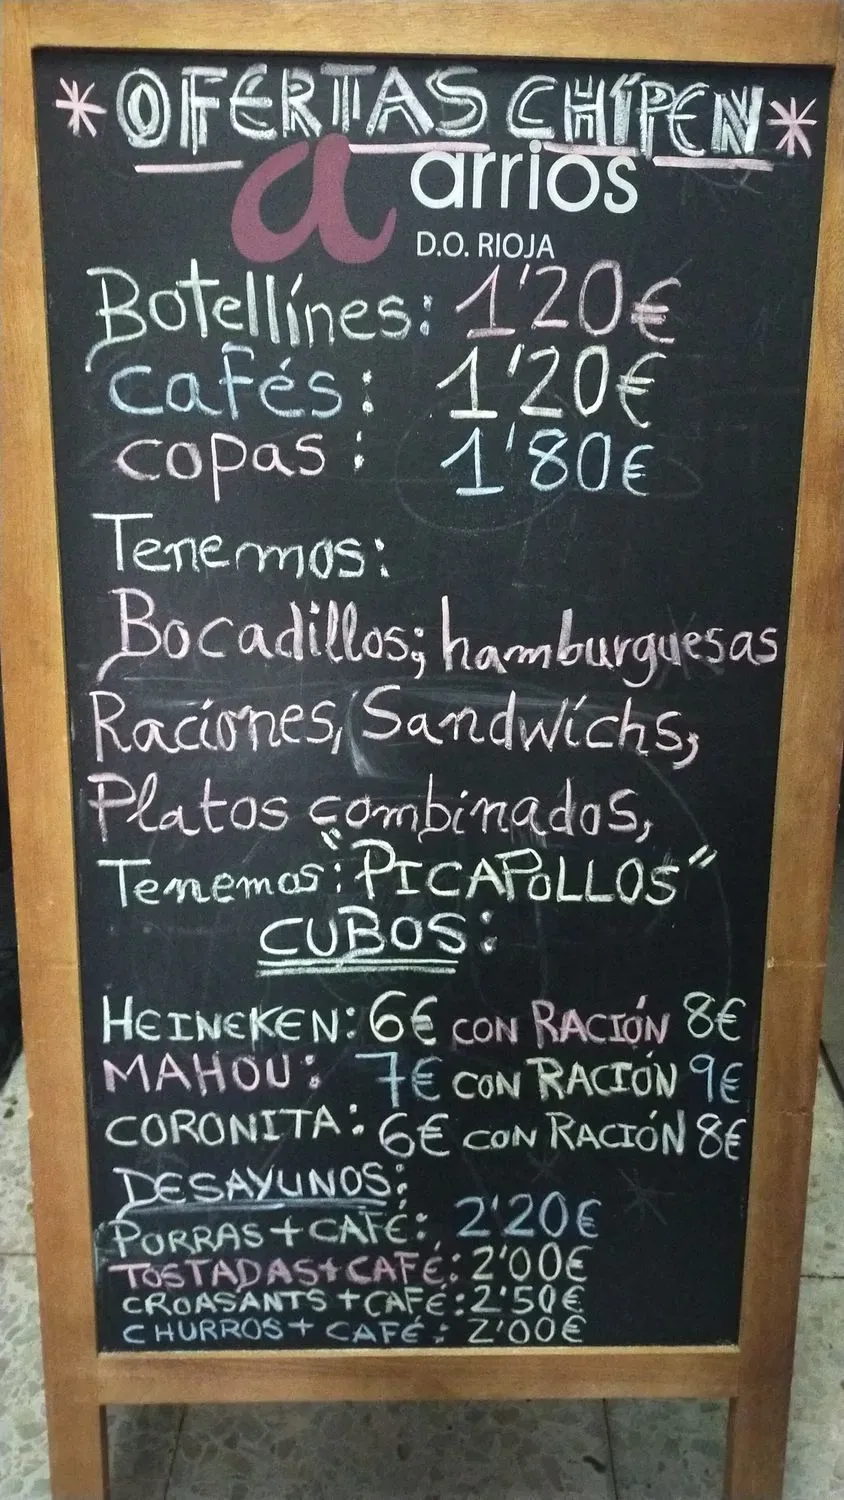 * OFERTAS CHÍPEN *
a arrios
D.O. RIOJA
Botellínes: 1'20€
cafés: 1'20€
copas: 1'80€
Tenemos:
Bocadillos; hamburguesas
Raciones, Sandwichs,
Platos combinados,
Tenemos: "PICAPOLLOS"
CUBOS:
HEINEKEN: 6€ CON RACIÓN 8€
MAHOU: 7€ CON RACIÓN 9€
CORONITA: 6€ CON RACIÓN 8€
DESAYUNOS:
PORRAS + CAFÉ: 2'20€
TOSTADAS + CAFÉ: 2'00€
CROASANTS + CAFÉ: 2'50€
CHURROS + CAFÉ: 2'00€